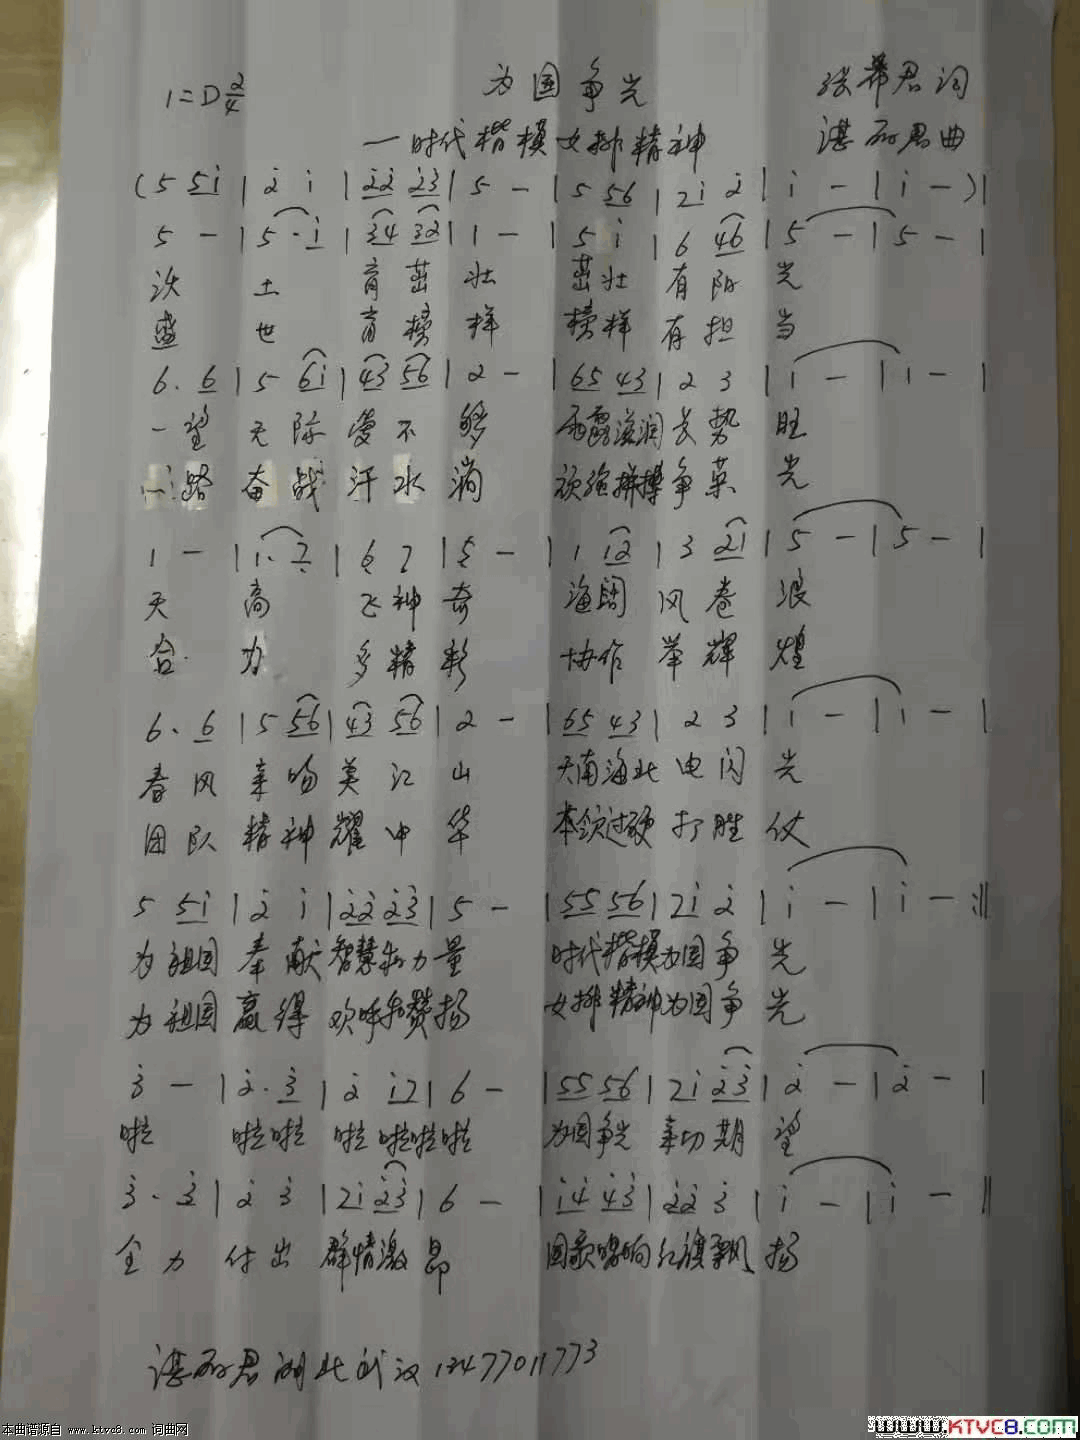 1=D 2/4 为国争光 张希君词
一时代楷模女排精神 谌丽君曲
(5 5i | 2 i | 22 23 | 5 — | 5 56 | 2i 2 | i — | i —)|
5 — | 5·i | 34 32 | 1 — | 5 i | 6 46 | 5 — | 5 — |
沃 土 育茁 壮 茁壮 有阳 光
盛 世 育榜 样 榜样 有担 当
6. 6 | 5 6i | 43 56 | 2 — | 65 43 | 2 3 | i — | i — |
一望 无际 望不 够 雨露滋润长势 旺
一路 奋战 汗水 淌 顽强拼搏争英 光
1 — | 1.7 | 6 7 | 5 — | 1 12 | 3 21 | 5 — | 5 — |
天 高 飞神 奇 海阔 风卷 浪
合 力 多精 彩 协作 举辉 煌
6. 6 | 5 56 | 43 56 | 2 — | 65 43 | 2 3 | 1 — | 1 — |
春风 亲吻美江 山 天南海北 电闪 光
团队 精神耀中 华 本领过硬 打胜 仗
5 5i | 2 i | 22 23 | 5 — | 55 56 | 2i 2 | i — | i — :||
为祖国 奉献智慧和力量 时代楷模为国争 光
为祖国赢得 欢呼和赞扬 女排精神为国争 光
3 — | 2.3 | 2 i2 | 6 — | 55 56 | 2i 23 | 2 — | 2 — |
啦 啦啦 啦 啦啦啦 为国争光 亲切期 望
3. 3 | 2 3 | 2i 23 | 6 — | i4 43 | 22 3 | i — | i — ||
全力 付出 群情激 昂 国歌唱响红旗飘 扬
谌丽君湖北武汉13477011773
本曲谱源自 www.ktvc8.com 词曲网
www.KTVC8.com